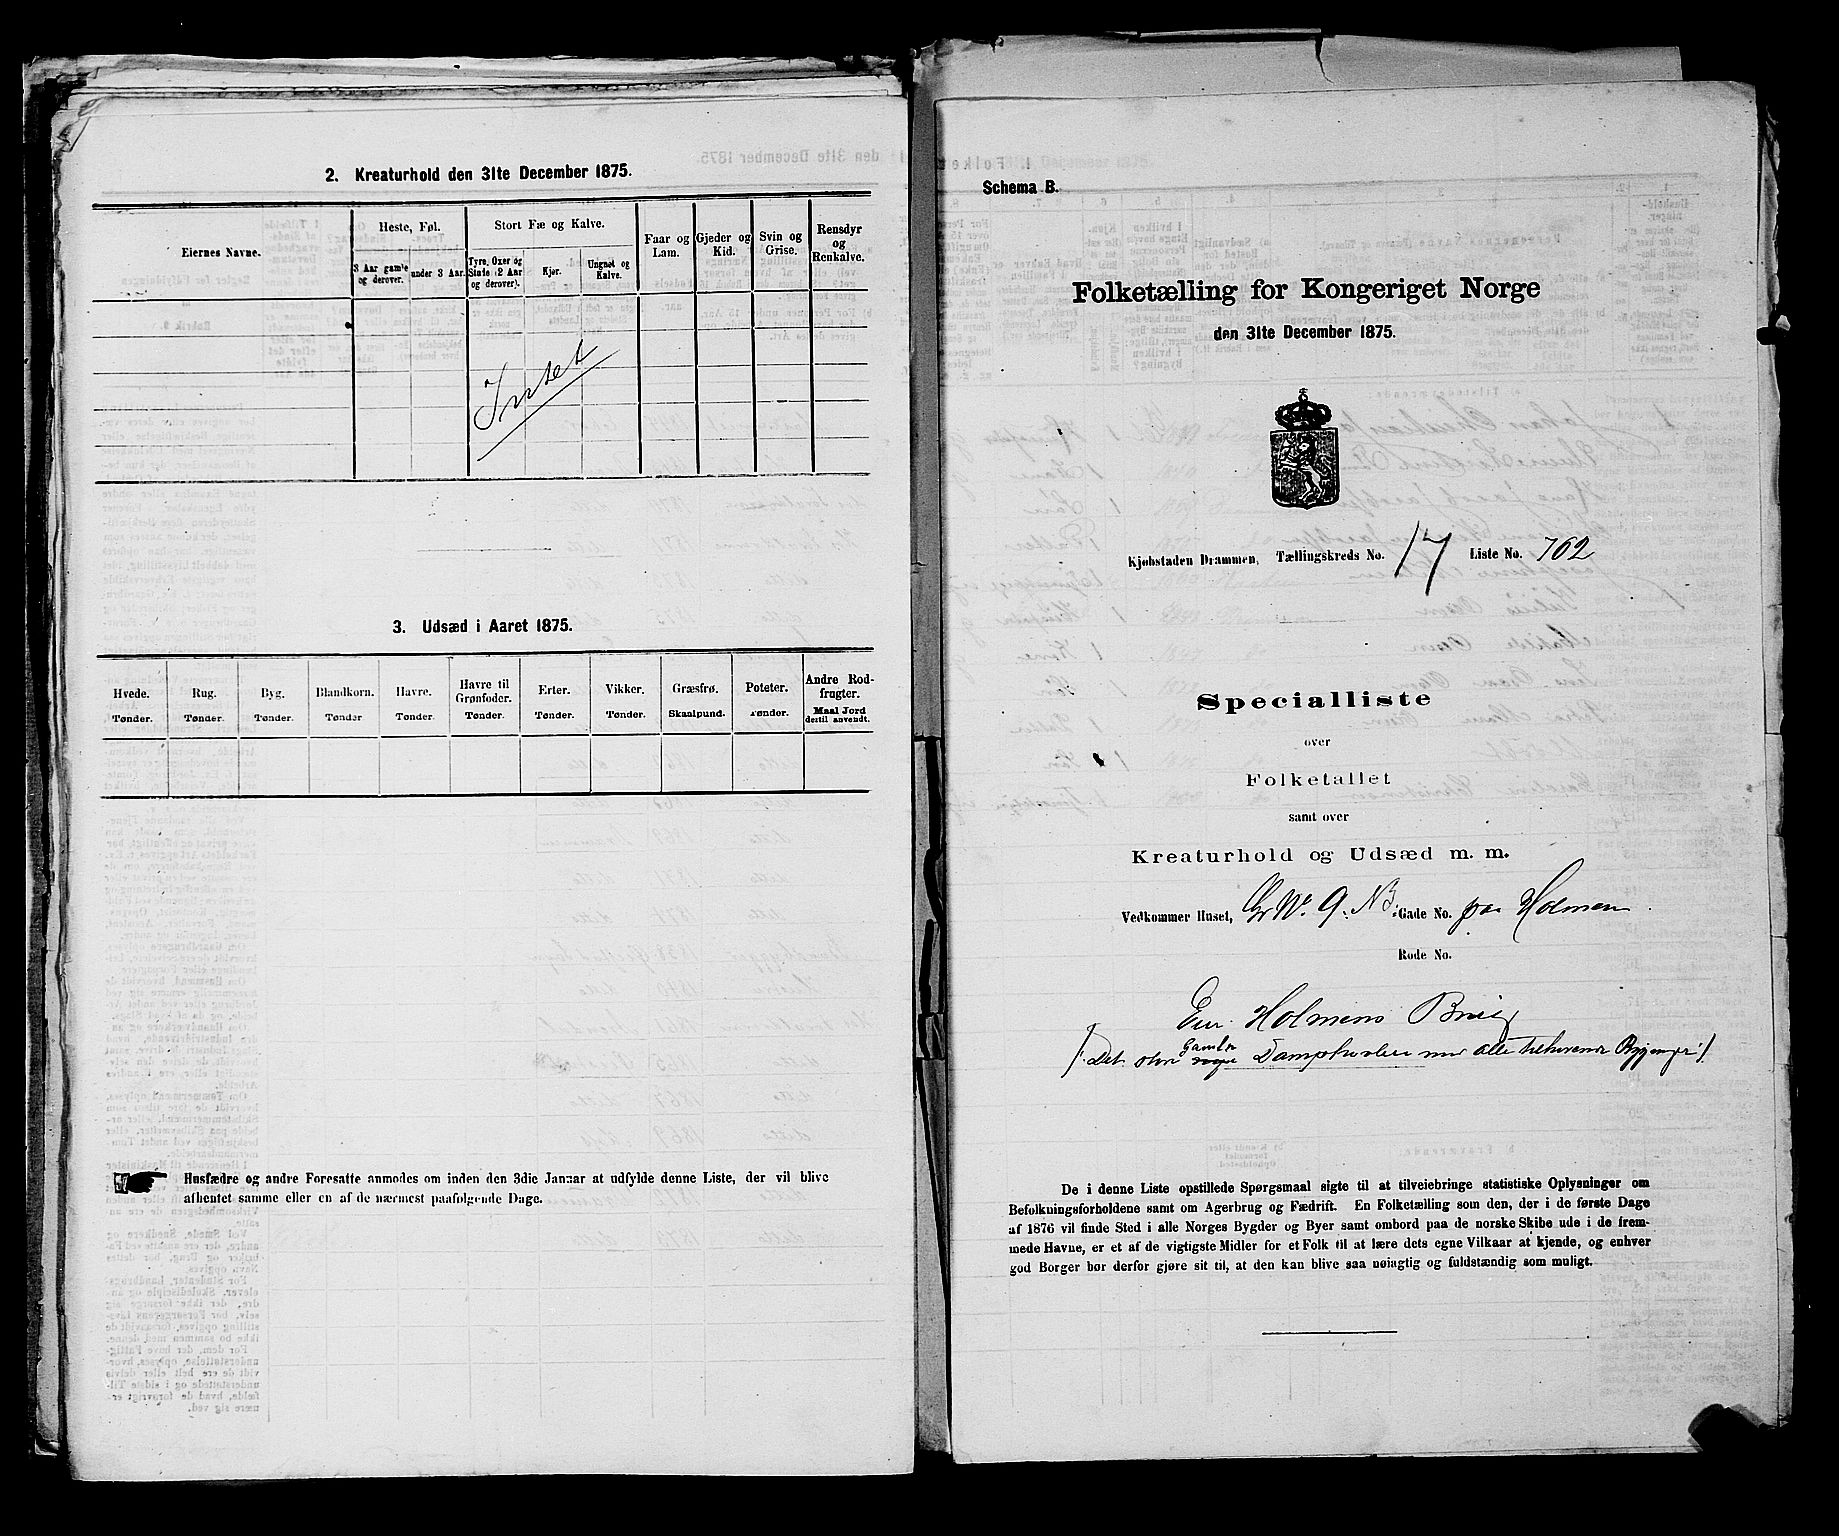 2. Kreaturhold den 31te December 1875.
Eiernes Navne.
Heste, Føl.
3 Aar gamle og derover.
under 3 Aar.
Stort Fæ og Kalve.
Tyre, Oxer og Stude (2 Aar og derover).
Kjør.
Ungnøt og Kalve.
Faar og Lam.
Gjeder og Kid.
Svin og Grise.
Rensdyr og Renkalve.
Intet
3. Udsæd i Aaret 1875.
Hvede. Tønder.
Rug. Tønder.
Byg. Tønder.
Blandkorn. Tønder
Havre. Tønder.
Havre til Grønfoder. Tønder.
Erter. Tønder.
Vikker. Tønder.
Græsfrø. Skaalpund.
Poteter. Tønder.
Andre Rodfrugter. Maal Jord dertil anvendt.
Husfædre og andre Foresatte anmodes om inden den 3die Januar at udfylde denne Liste, der vil blive
afhentet samme eller en af de nærmest paafølgende Dage.
Schema B.
Folketælling for Kongeriget Norge
den 31te December 1875.
Kjøbstaden Drammen, Tællingskreds No. 17 Liste No. 762
Specialliste
over
Folketallet
samt over
Kreaturhold og Udsæd m. m.
Vedkommer Huset, Gr No. 9. Gade No. paa Holmen
Rode No.
Holmens Brug
Det store Gamle alle Bygninger
De i denne Liste opstillede Spørgsmaal sigte til at tilveiebringe statistiske Oplysninger om
Befolkningsforholdene samt om Agerbrug og Fædrift. En Folketælling som den, der i de første Dage
af 1876 vil finde Sted i alle Norges Bygder og Byer samt ombord paa de norske Skibe ude i de frem-
mede Havne, er et af de vigtigste Midler for et Folk til at lære dets egne Vilkaar at kjende, og enhver
god Borger bør derfor gjøre sit til, at den kan blive saa nøiagtig og fuldstændig som muligt.